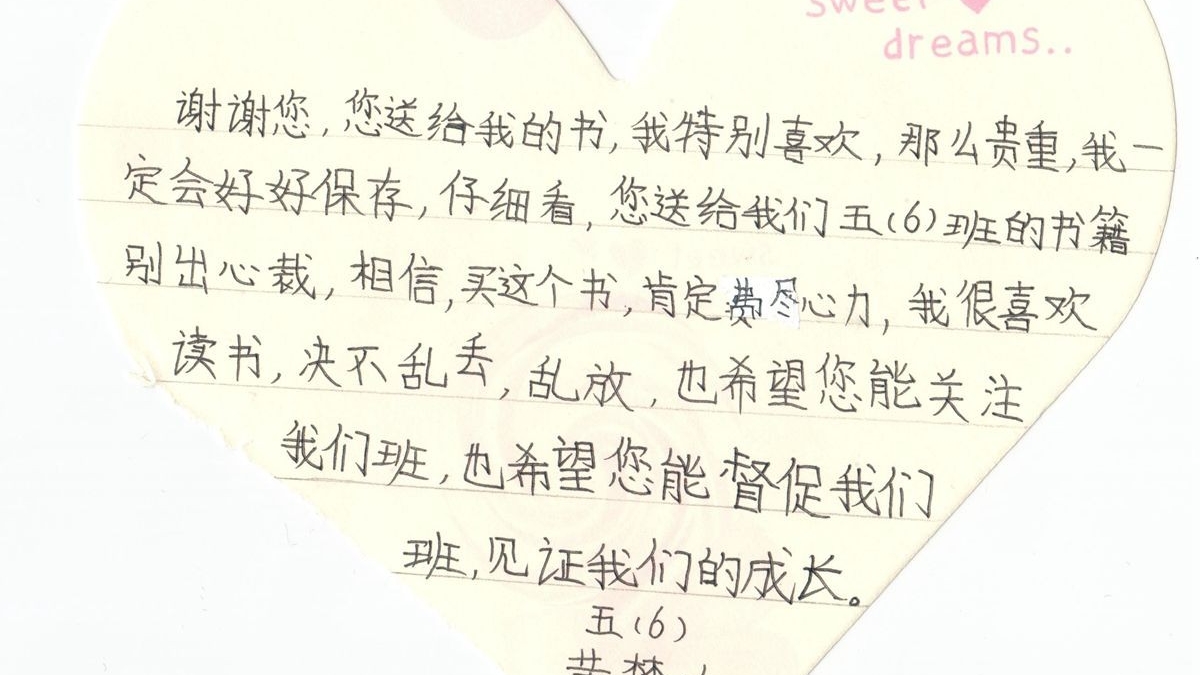 sweet
dreams..
谢谢您,您送给我的书,我特别喜欢,那么贵重,我一
定会好好保存,仔细看,您送给我们五(6)班的书籍
别出心裁,相信,买这个书,肯定费尽心力,我很喜欢
读书,决不乱丢,乱放,也希望您能关注
我们班,也希望您能督促我们
班,见证我们的成长。
五(6)